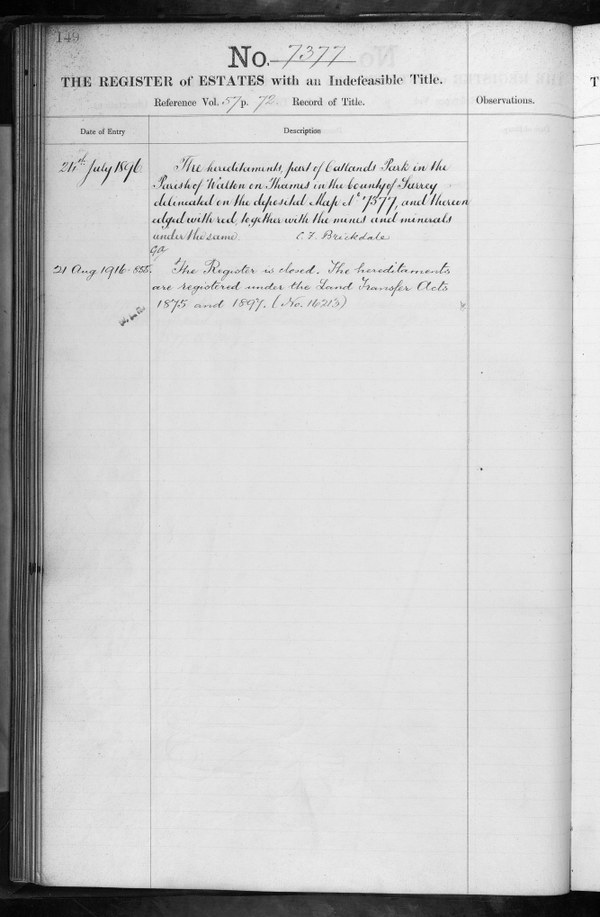 149
No. 7377
THE REGISTER of ESTATES with an Indefeasible Title.
Reference Vol. 57 p. 72. Record of Title.
Observations.
Date of Entry
Description
24th July 1896
The hereditaments, part of Oatlands Park in the
Parish of Walton on Thames in the County of Surrey
delineated on the deposited Map No 7377, and thereon
edged with red, together with the mines and minerals
under the same.
C. F. Brickdale
21 Aug 1916
The Register is closed. The hereditaments
are registered under the Land Transfer Acts
1875 and 1897. (No. 16213)